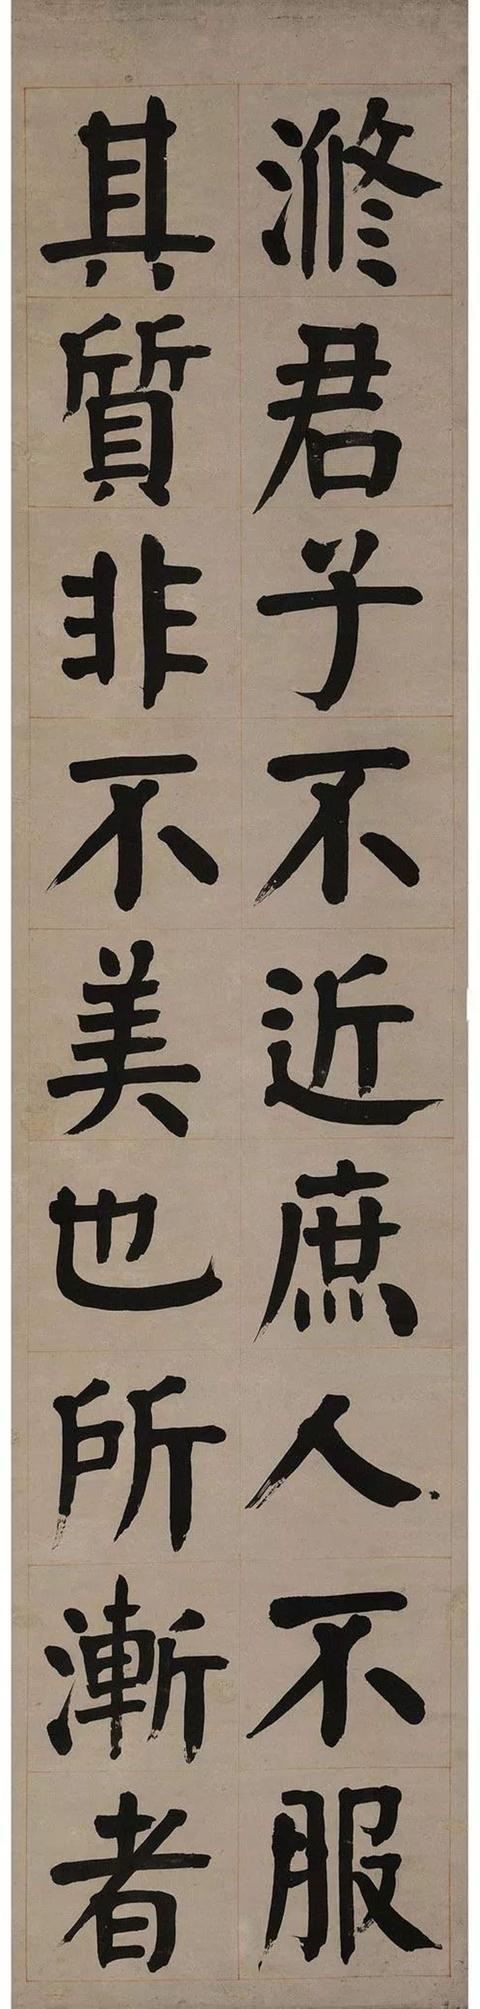 潃君子不近庶人不服
其質非不美也所漸者